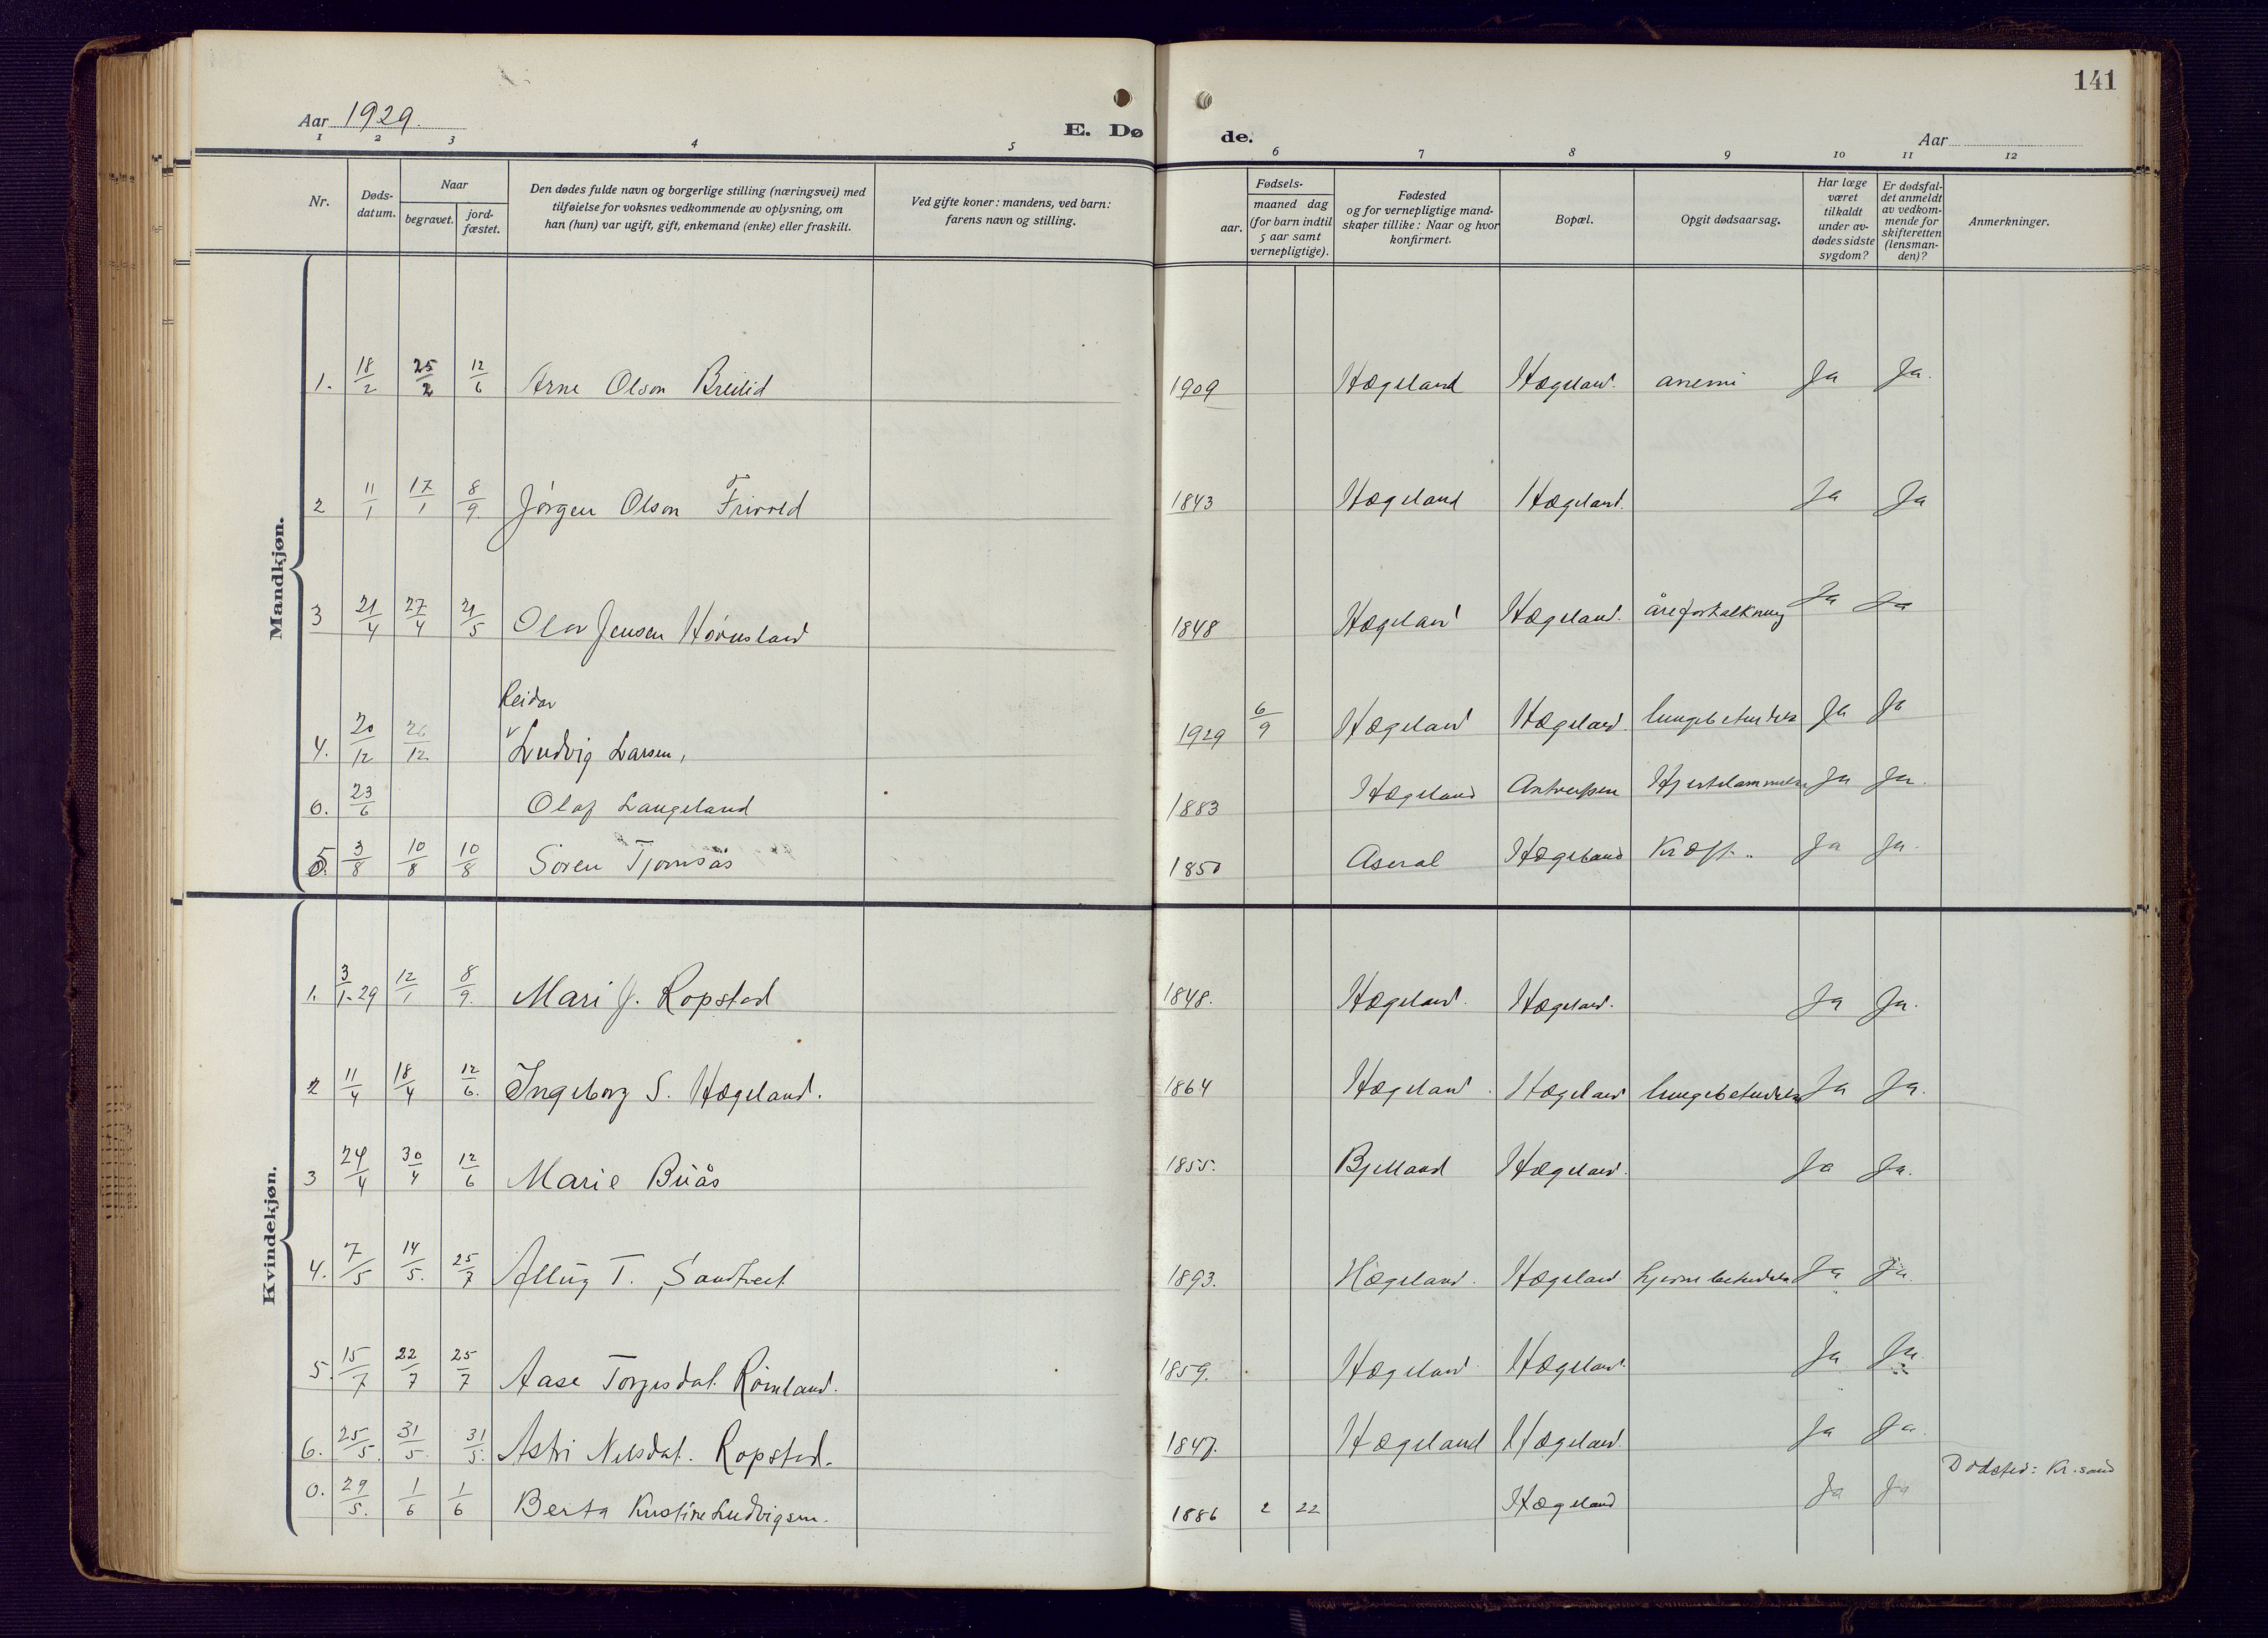 141
Aar 1929.
E. Dø de.
Aar
1 2 3 4 5 6 7 8 9 10 11 12
Nr.
Døds-
datum.
Naar
begravet.
jord-
fæstet.
Den dødes fulde navn og borgerlige stilling (næringsvei) med
tilføielse for voksnes vedkommende av oplysning, om
han (hun) var ugift, gift, enkemand (enke) eller fraskilt.
Ved gifte koner: mandens, ved barn:
farens navn og stilling.
aar.
Fødsels-
maaned dag
(for barn indtil
5 aar samt
vernepligtige).
Fødested
og for vernepligtige mand-
skaper tillike: Naar og hvor
konfirmert.
Bopæl.
Opgit dødsaarsag.
Har læge
været
tilkaldt
under av-
dødes sidste
sygdom?
Er dødsfal-
det anmeldt
av vedkom-
mende for
skifteretten
(lensman-
den)?
Anmerkninger.
Mandkjøn.
1. 18/2 25/2 12/6 Arne Olson Breilid 1909 Hægeland Hægeland. anemi Ja Ja.
2 11/1 17/1 8/9. Jørgen Olson Frivold 1843 Hægeland Hægeland. Ja Ja
3 21/4 27/4 21/5 Olav Jensen Hørnsland 1848 Hægeland Hægeland. åreforkalkning Ja Ja
Reidar
4. 20/12 26/12 Ludvig Larsen, 1929 6/9 Hægeland Hægeland. lungebetendelse Ja Ja
0. 23/6 Olaf Langeland 1883 Hægeland Antwerpen Hjertelammelse Ja Ja.
5. 3/8 10/8 10/8 Søren Tjomsås 1850 Aseral Hægeland Kræft Ja Ja.
Kvindekjøn.
1. 3/1-29 12/1 8/9. Mari J. Ropstad 1848. Hægeland. Hægeland. Ja Ja.
2 11/4 18/4 12/6. Ingeborg S. Hægeland. 1864 Hægeland. Hægeland lungebetendelse Ja Ja.
3 24/4 30/4 12/6 Marie Buås 1855. Bjelland Hægeland. Ja Ja.
4. 7/5 14/5. 25/7 T. 1893. Hægeland. Hægeland hjernebetendelse Ja Ja.
5. 15/7 22/7 25/7 Aase Torjesdat. 1859. Hægeland Hægeland. Ja Ja.
6. 25/5. 31/5 31/5. Astri Nilsdat. Ropstad. 1847. Hægeland Hægeland. Ja Ja.
0. 29/5. 1/6 1/6 Berta Kristine Ludvigsen. 1886 2 22 Hægeland Ja Ja Dødsted: Kr.sand